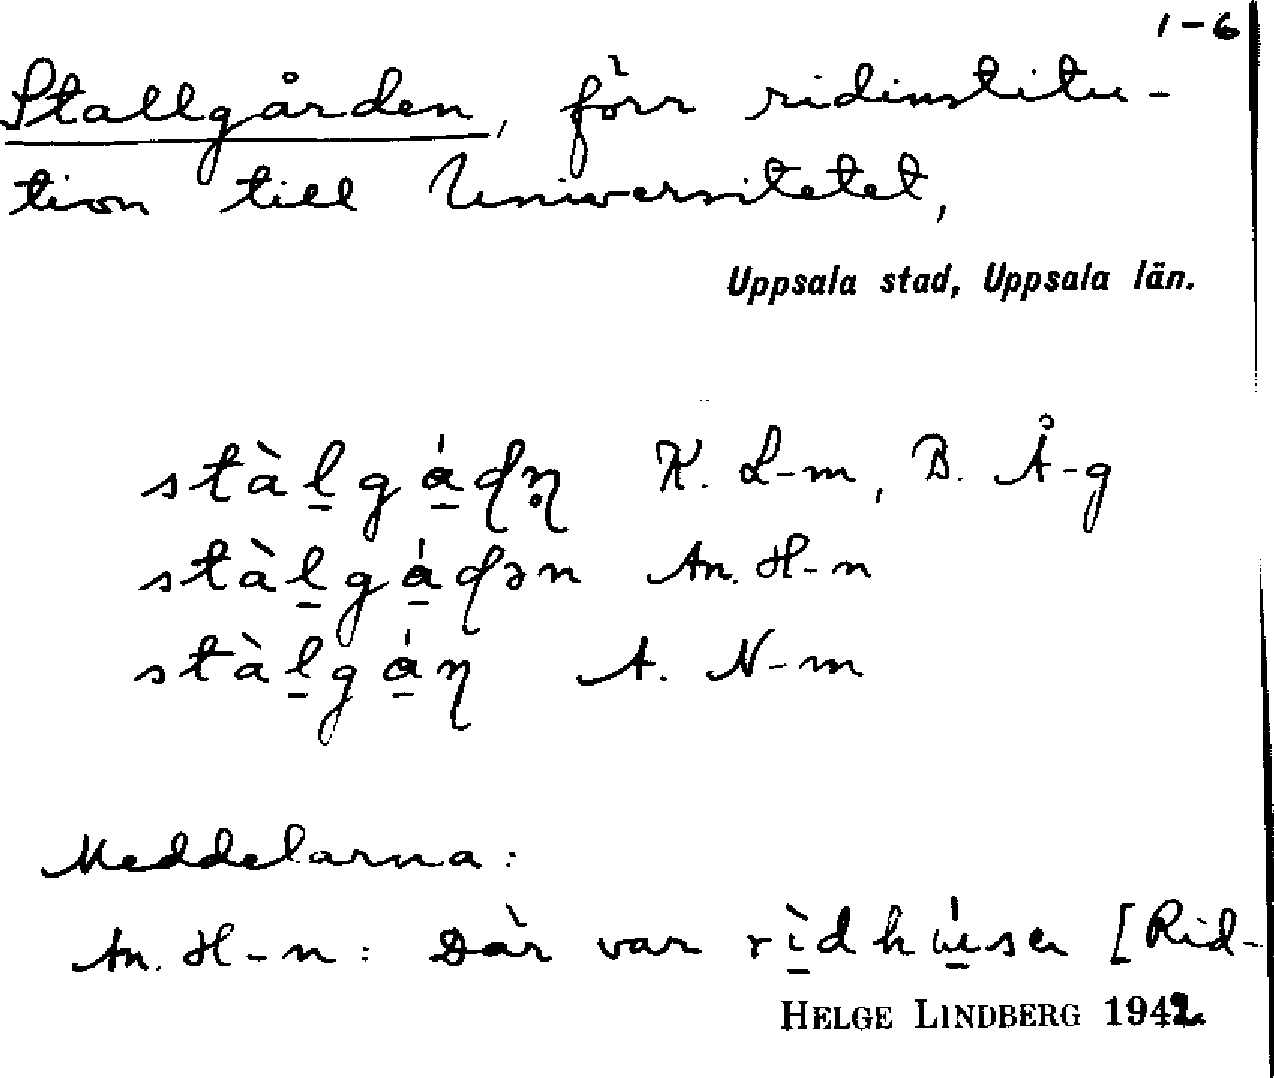 1-6
Stallgården, förr ridinstitu-
tion till Universitetet,
Uppsala stad, Uppsala län.
stàl̲gá̲ɖη̥ K. L-m, B. Å-g
stàl̲gá̲ɖən An. H-n
stàl̲gá̲η A. N-m
Meddelarna:
An. H-n: Där var rì̲dhú̲sen [Rid-
HELGE LINDBERG 1942.